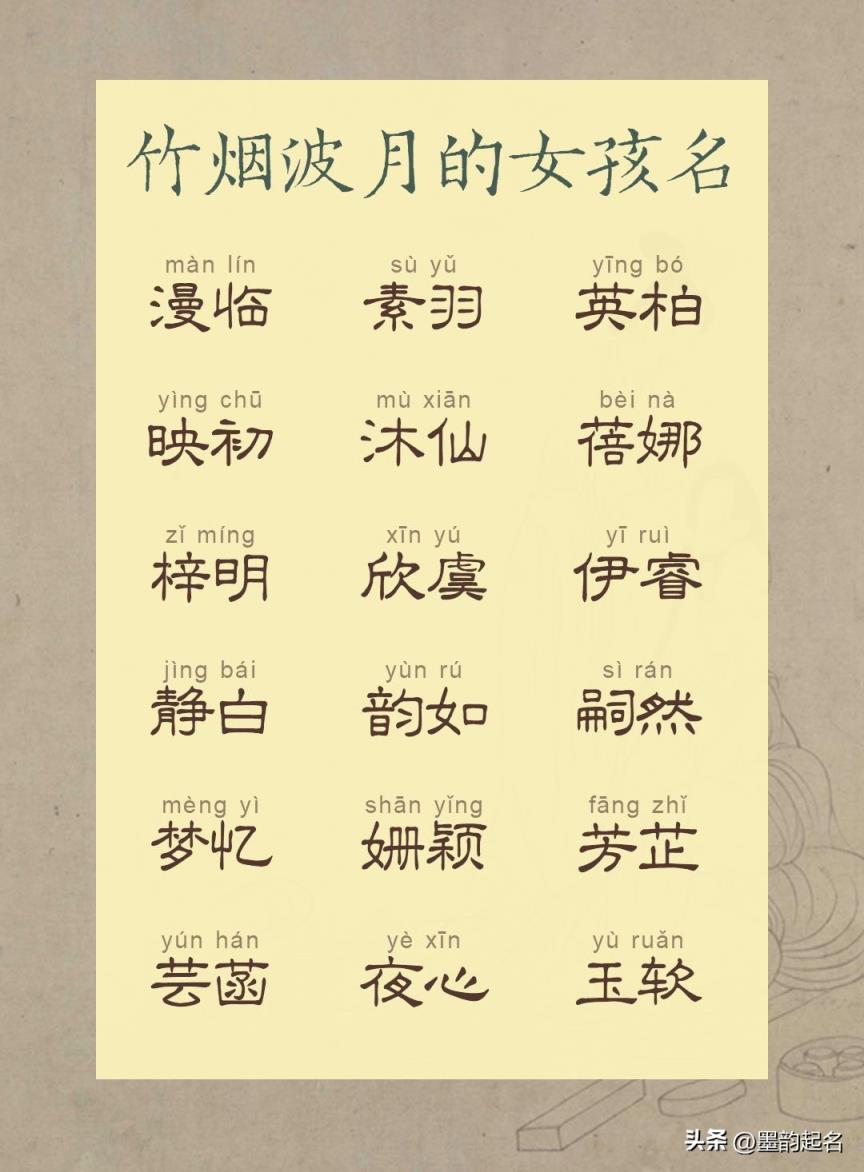 竹烟波月的女孩名
màn lín sù yǔ yīng bó
漫临 素羽 英柏
yìng chū mù xiān bèi nà
映初 沐仙 蓓娜
zǐ míng xīn yú yī ruì
梓明 欣虞 伊睿
jìng bái yùn rú sì rán
静白 韵如 嗣然
mèng yì shān yǐng fāng zhǐ
梦忆 姗颖 芳芷
yún hán yè xīn yù ruǎn
芸菡 夜心 玉软
头条 @墨韵起名